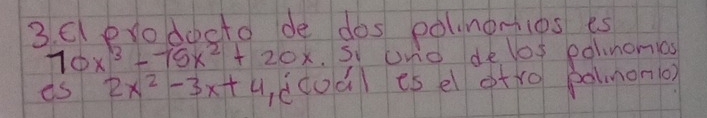 3. El prodocto de dos polinomios es
10x³ - 15x² + 20x. Si uno de los polinomios
es 2x² - 3x + 4, ¿coál es el otro polinomio?